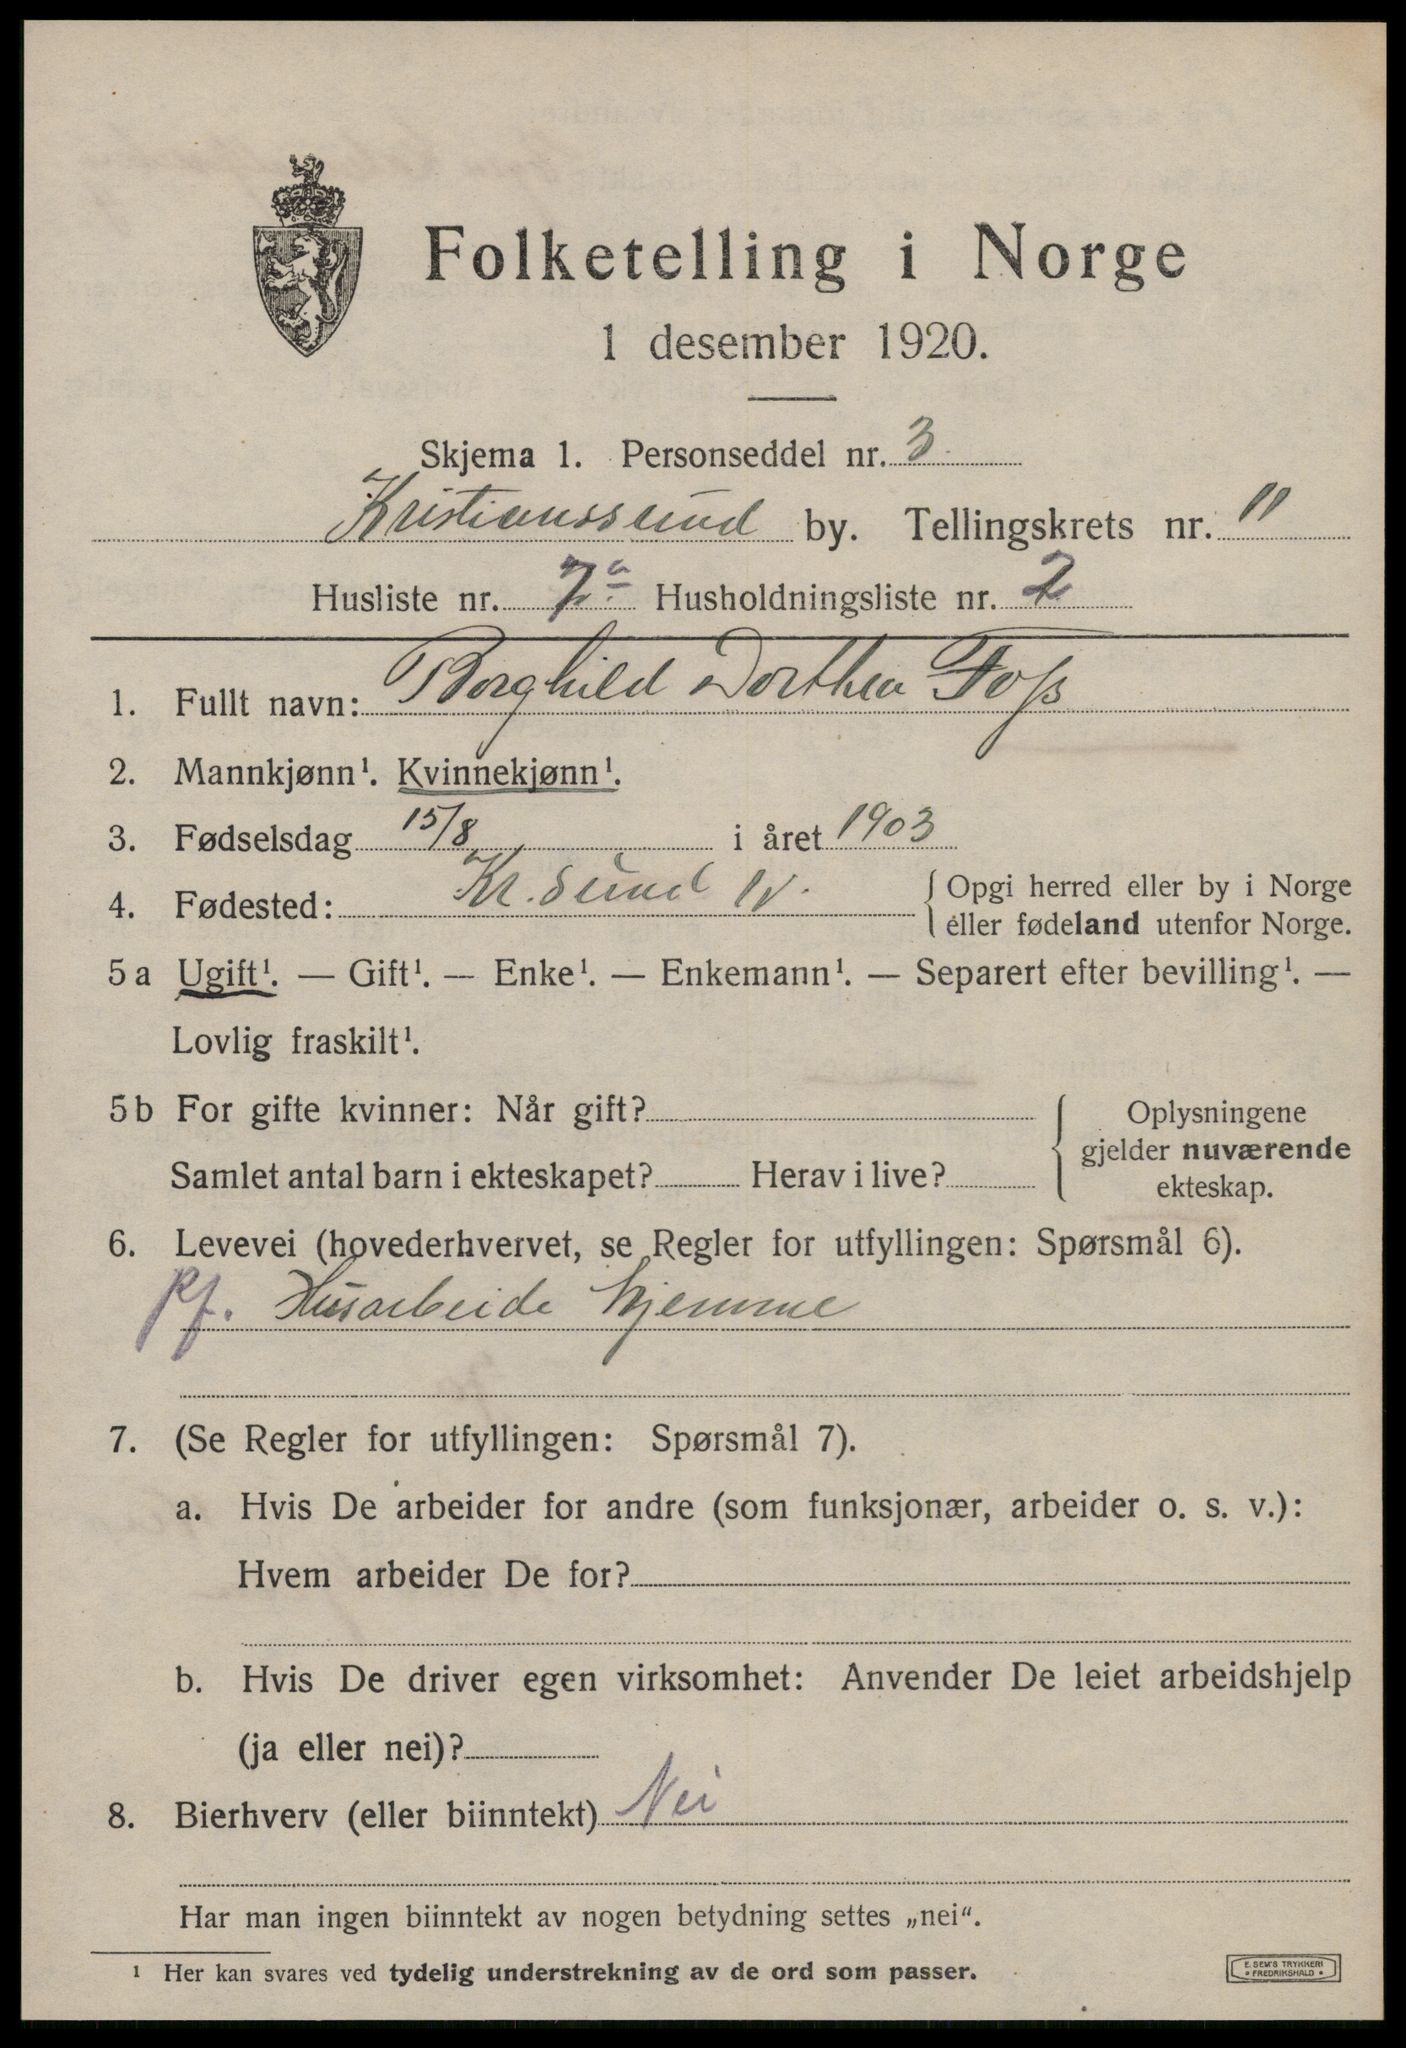 Folketelling i Norge
1 desember 1920.
Skjema 1. Personseddel nr. 3
Kristianssund by. Tellingskrets nr. 11
Husliste nr. 7a Husholdningsliste nr. 2
1. Fullt navn: Borghild Dorthea Foss
2. Mannkjønn¹. Kvinnekjønn¹.
3. Fødselsdag 15/8 i året 1903
4. Fødested: Kr.sund N. Opgi herred eller by i Norge
eller fødeland utenfor Norge.
5a Ugift¹. — Gift¹. — Enke¹. — Enkemann¹. — Separert efter bevilling¹. —
Lovlig fraskilt¹.
5b For gifte kvinner: Når gift?
Samlet antal barn i ekteskapet? Herav i live?
Oplysningene
gjelder nuværende
ekteskap.
6. Levevei (hovederhvervet, se Regler for utfyllingen: Spørsmål 6).
pf. Husarbeide hjemme
7. (Se Regler for utfyllingen: Spørsmål 7).
a. Hvis De arbeider for andre (som funksjonær, arbeider o. s. v.):
Hvem arbeider De for?
b. Hvis De driver egen virksomhet: Anvender De leiet arbeidshjelp
(ja eller nei)?
8. Bierhverv (eller biinntekt) Nei
Har man ingen biinntekt av nogen betydning settes „nei“.
¹ Her kan svares ved tydelig understrekning av de ord som passer.
E. SEM'S TRYKKERI
• FREDRIKSHALD •